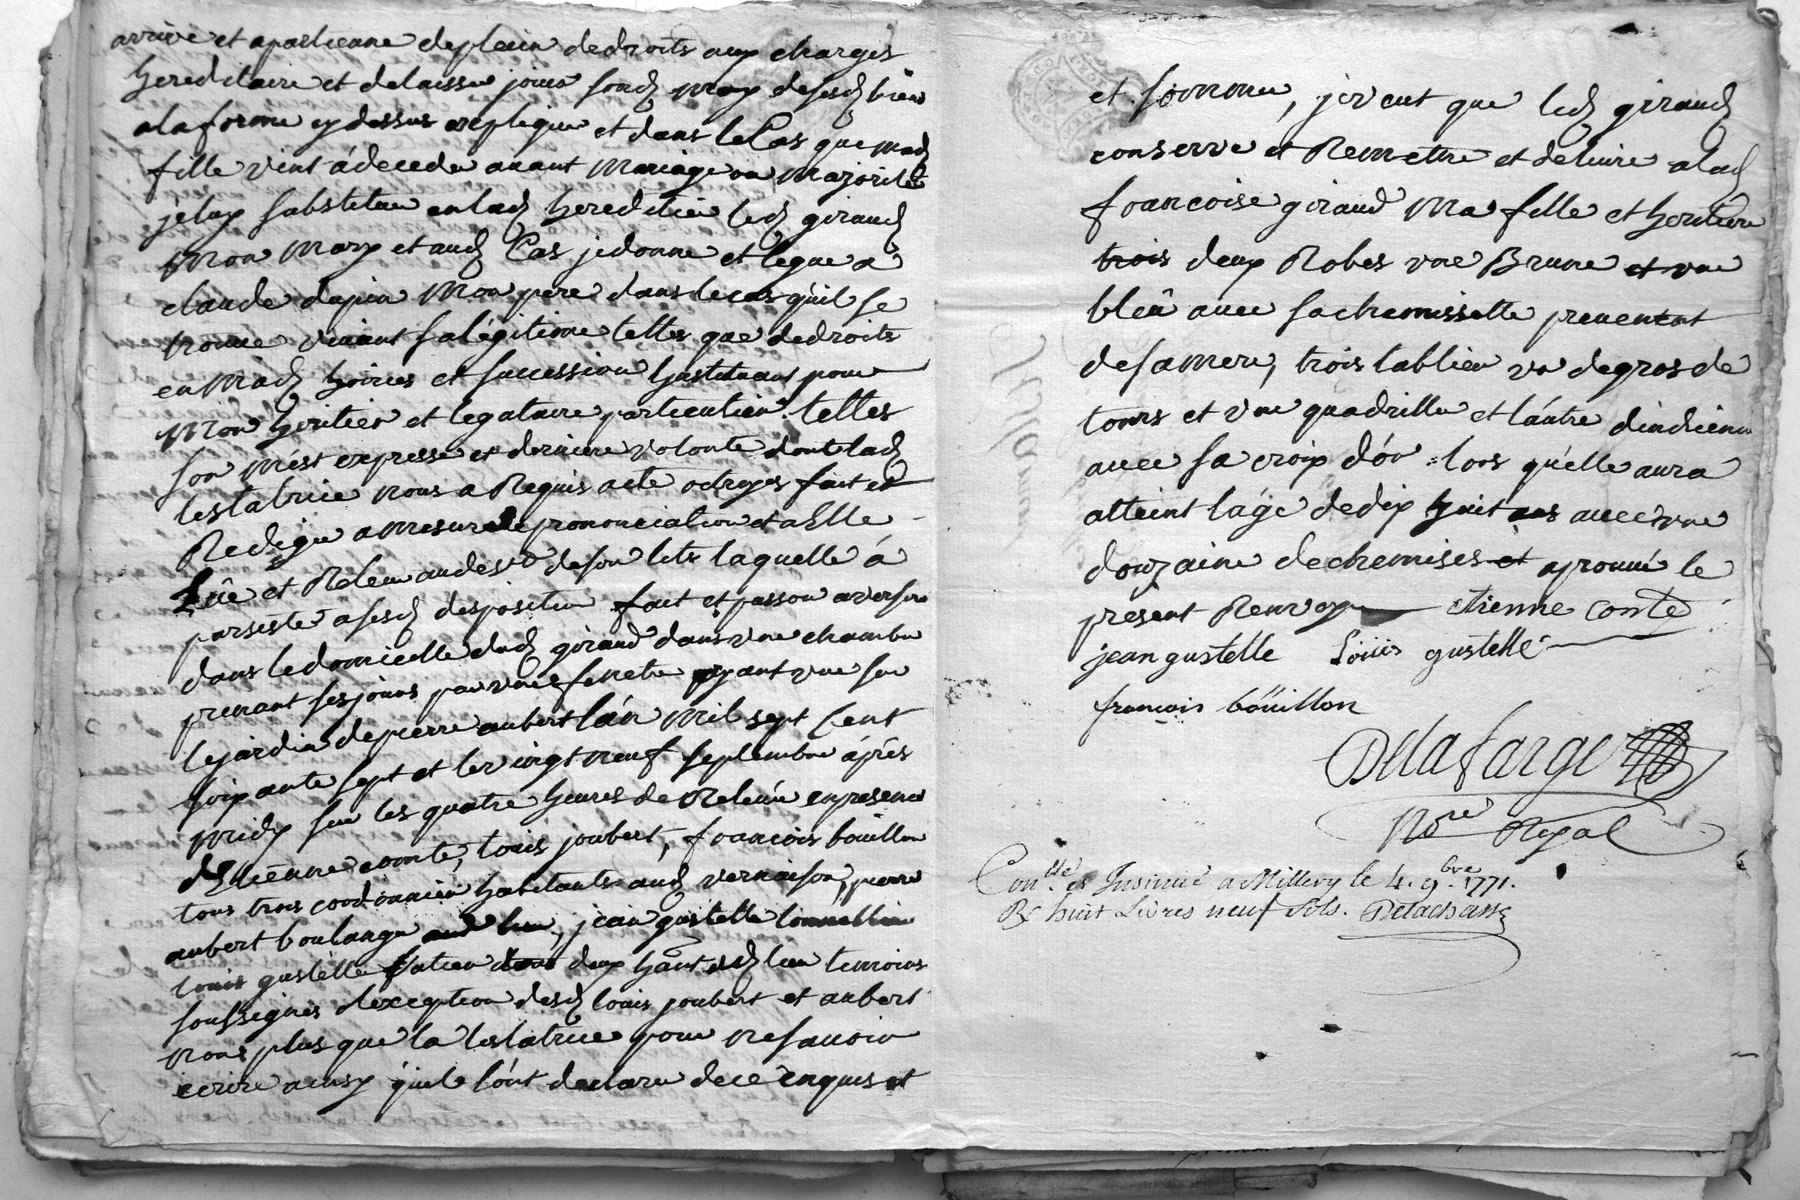 arrive et apartienne deplein dedroits aux charges
hereditaire et delaisser jouir sond mary desesd biens
alaforme cy dessus expliqué et dans le Cas que mad
fille vint á deceder avant mariage ou majorité
jeluy substitue enlad heredité led giraud
mon mary et aud Cas jedonne et legue a
claude dupin mon pere dans lecas quil se
trouve vivant salégitime telles que dedroits
en mad hoiries et succession Linstituant pour
mon heritier et legataire particulier. telles
son mést expresse et derniere volonte dont lad
testatrice nous a Requis acte octroyes fait et
Redigé amesure de prononciation et a Elle
Lüe et Releu audessus deson lits laquelle á
parsisté asesd disposition fait et passé aversons
dans ledomicille dud giraud dans vne chambre
prenant sesjours par vne fenetre ayant vue sur
lejardin depierre aubert lán mil sept Cent
soixante sept et levingt neuf septembre áprés
midy sur les quatre heures de Relevée enpresence
dEtienne comte, louis joubert, françois bouillon
tous trois cordonnier habitants aud vernaison, pierre
aubert boulanger aud lieu, jean gustelle tonnellier
louis gustelle tous deux hant dud lieu temoins
soussignés alexception desd louis joubert et aubert
non plus que la testatrice pour nesavoir
ecrire ainsy quils lónt declaré dece enquis et
et sommé, jeveut que led giraud
conserve et Remettre et delivre alad
francoise giraud ma fille et heritiere
trois deux Robes vne Brune et vne
bleû avec sa chemissette prevenent
desamere, trois tablier vn degros de
tours et vne quadrille et láutre díndienne
avec sa croix dór lors quélle aura
atteint láge dedix huit ans avec vne
douzaine dechemises et aprouvé le
present Renvoy etienne conte
jean gustelle Loüis gustelle
françois boüillon
Delafarge
Nore Royal
Conlle et Insinué a Millery le 4. 9.bre 1771.
R. huit Livres neuf sols. Delachassz